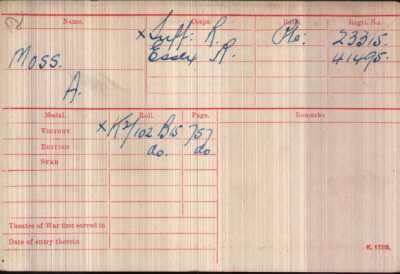 Name. Corps. Rank. Regtl. No.
x Suff: R. Pte: 23315.
Moss. Essex R. 41495.
A.
Medal. Roll. Page. Remarks.
VICTORY x K2/102 B15 757
BRITISH do. do
STAR
Theatre of War first served in
Date of entry therein
K. 1709.